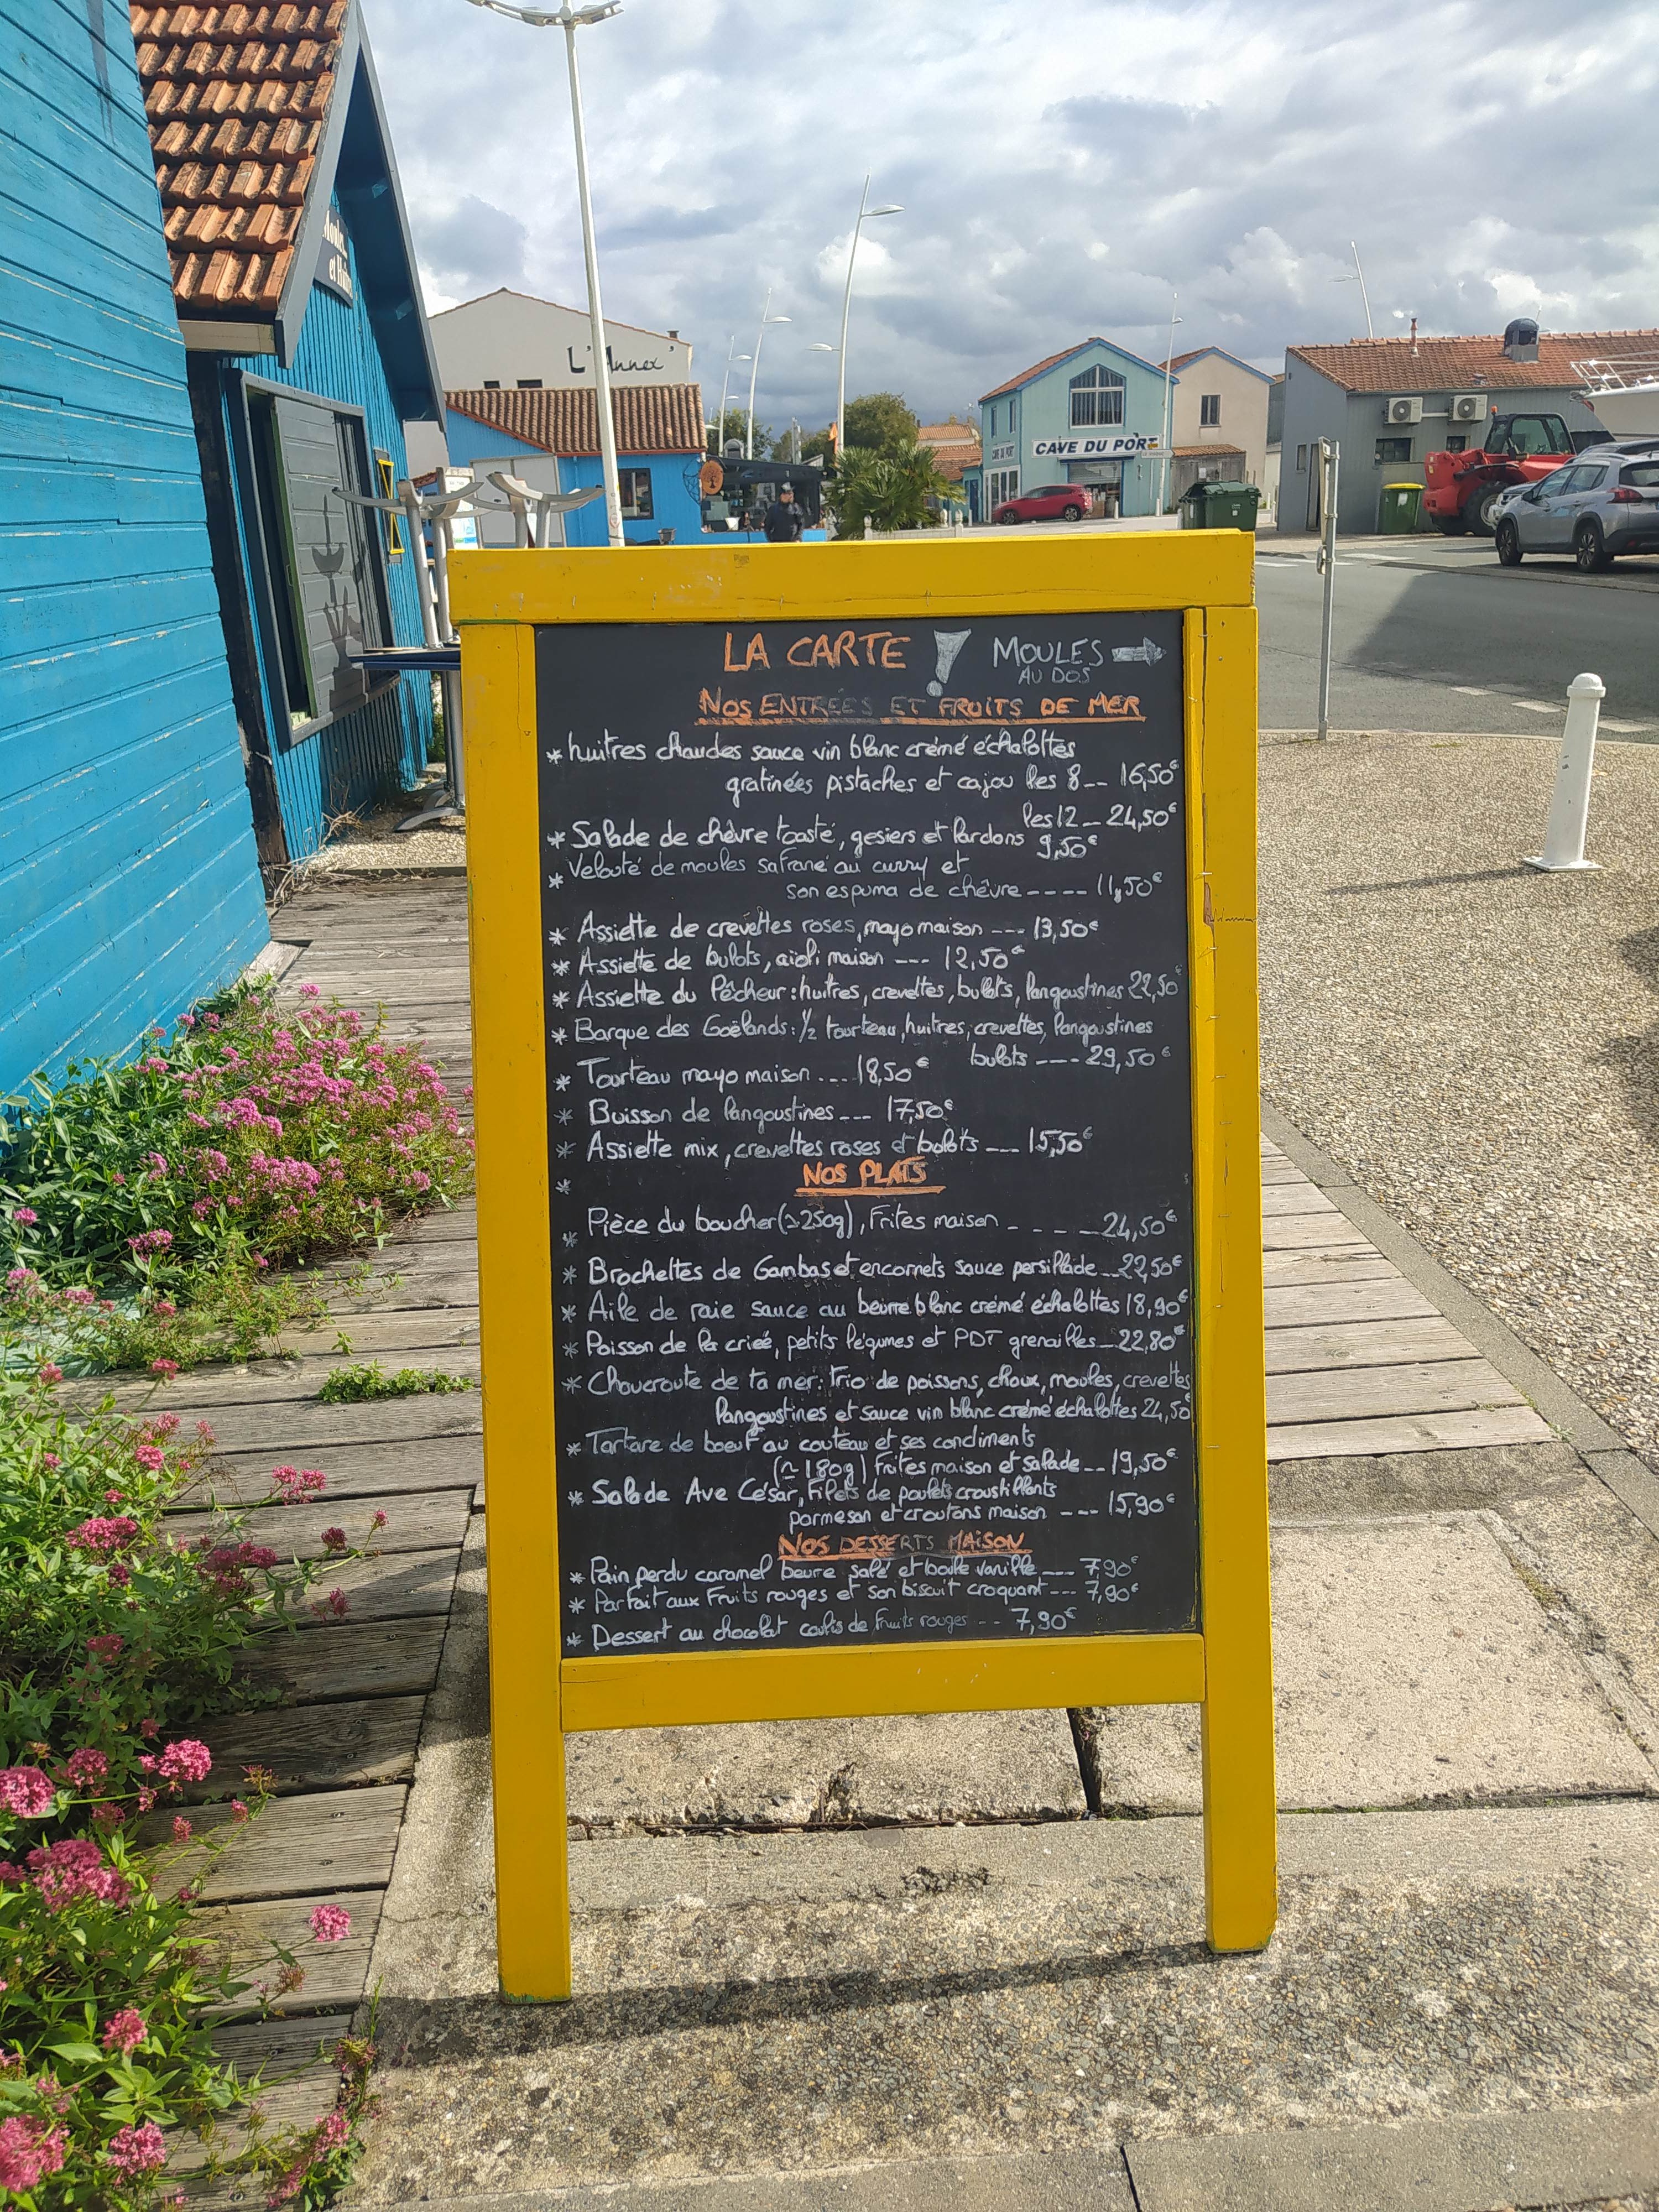 Moules
et Huîtres
L'Annex'
CAVE DU PORT
CAVE DU PORT
LA CARTE ! MOULES →
AU DOS
NOS ENTREES ET FRUITS DE MER
* huitres chaudes sauce vin blanc crémé échalottes
gratinées pistaches et cajou les 8-- 16,50€
les 12 _ 24,50€
* Salade de chèvre toasté, gesiers et lardons 9,50€
* Velouté de moules safrané au curry et
son espuma de chêvre ---- 11,50€
* Assiette de crevettes roses, mayo maison --- 13,50€
* Assiette de bulots, aïoli maison --- 12,50€
* Assiette du Pêcheur : huitres, crevettes, bulots, langoustines 22,50€
* Barque des Goëlands : 1/2 tourteau, huitres, crevettes, langoustines
bulots ---- 29,50€
* Tourteau mayo maison ... 18,50€
* Buisson de langoustines --- 17,50€
* Assiette mix, crevettes roses et bulots --- 15,50€
NOS PLATS
*
* Pièce du boucher (~250g), Frites maison - - - - 24,50€
* Brochettes de Gambas et encornets sauce persillade _ 22,50€
* Aile de raie sauce au beurre blanc crémé échalottes 18,90€
* Poisson de la crieé, petits légumes et PDT grenailles _ 22,80€
* Choucroute de ta mer : Trio de poissons, choux, moules, crevettes
langoustines et sauce vin blanc crémé échalottes 24,50
* Tartare de boeuf au couteau et ses condiments
(~180g) Frites maison et salade -- 19,50€
* Salade Ave César, Filets de poulets croustillants
parmesan et croutons maison --- 15,90€
NOS DESSERTS MAISON
* Pain perdu caramel beurre salé et boule vanille --- 7,90€
* Parfait aux Fruits rouges et son biscuit croquant --- 7,90€
* Dessert au chocolat coulis de fruits rouges -- 7,90€